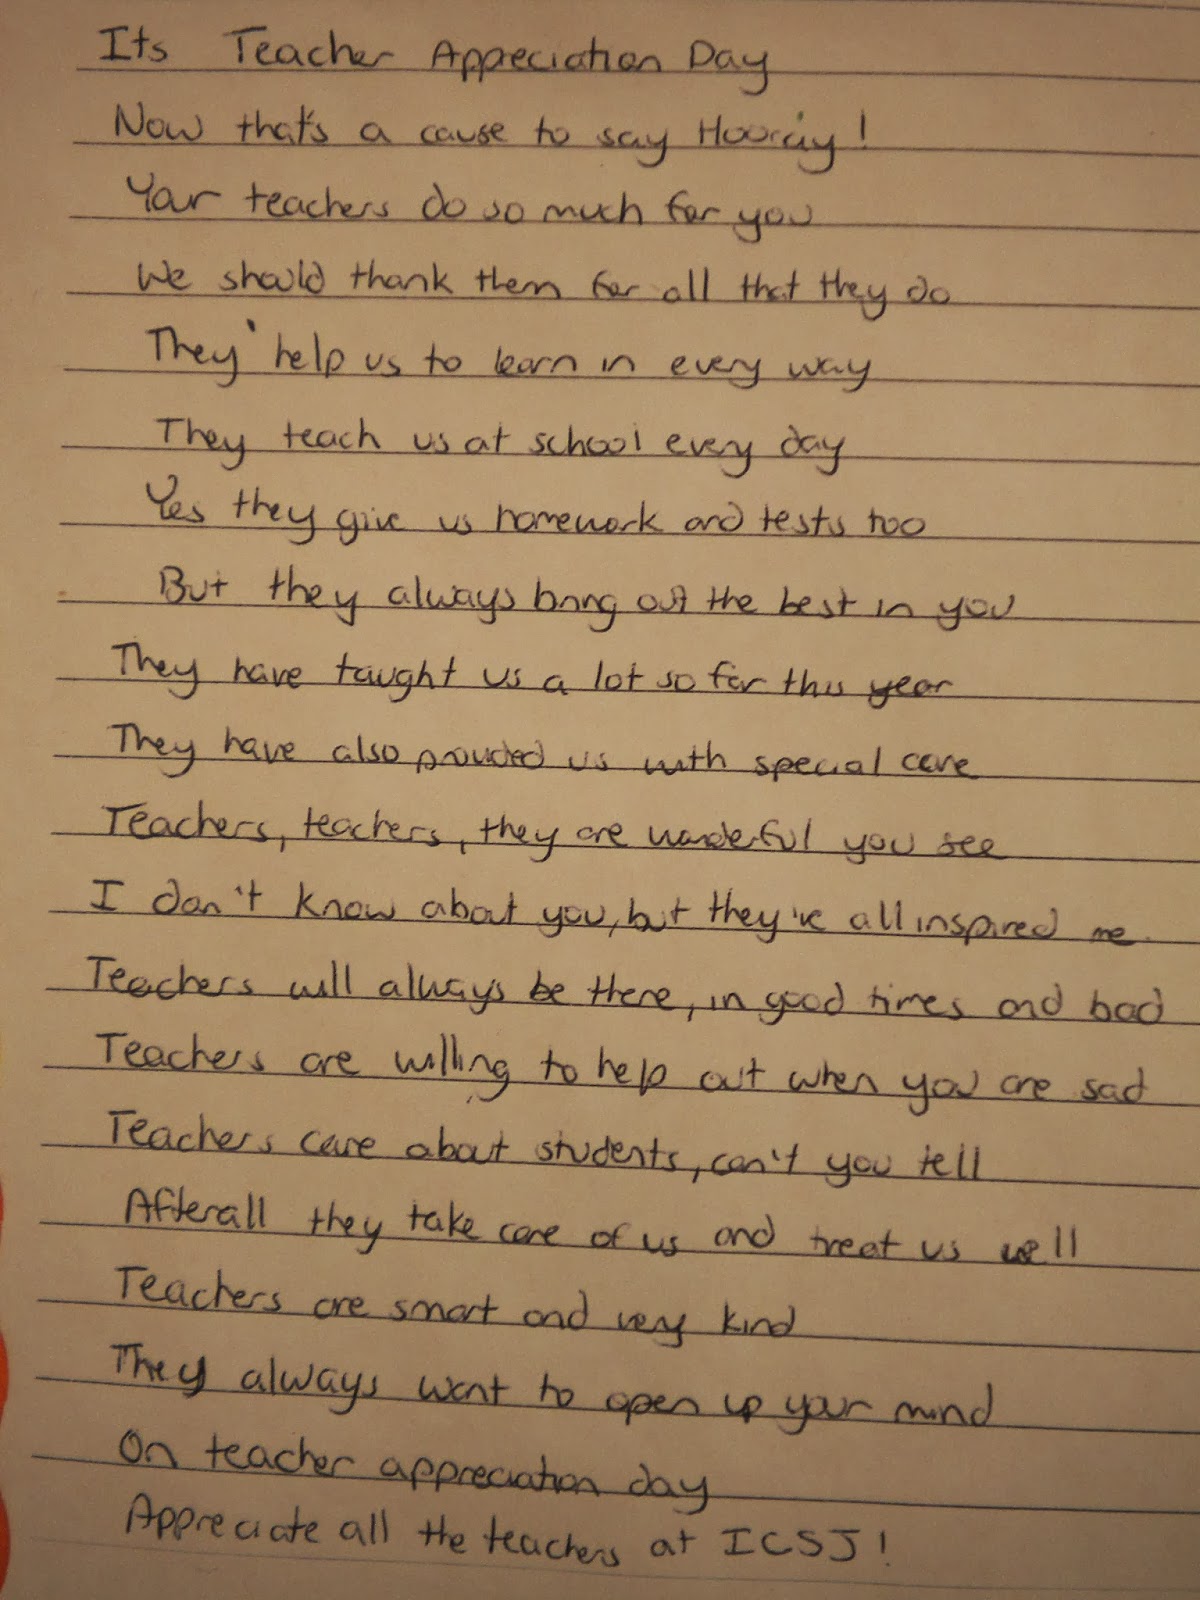 Its Teacher Appreciation Day
Now that's a cause to say Hooray!
Your teachers do so much for you
We should thank them for all that they do
They help us to learn in every way
They teach us at school every day
Yes they give us homework and tests too
But they always bring out the best in you
They have taught us a lot so far this year
They have also provided us with special care
Teachers, teachers, they are wonderful you see
I don't know about you, but they've all inspired me
Teachers will always be there, in good times and bad
Teachers are willing to help out when you are sad
Teachers care about students, can't you tell
Afterall they take care of us and treat us well
Teachers are smart and very kind
They always want to open up your mind
On teacher appreciation day
Appreciate all the teachers at ICSJ!